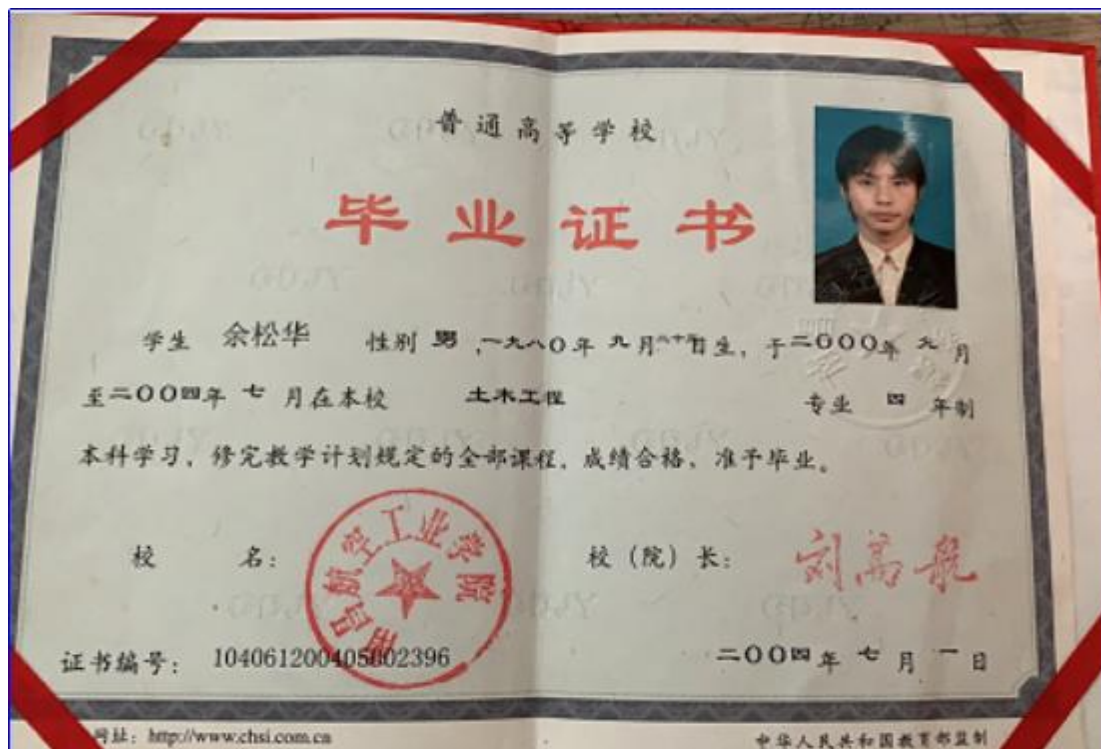 普通高等学校
毕业证书
学生 余松华 性别 男 ,一九八〇年 九月 日生, 于二〇〇〇年 九 月
至二〇〇四年 七 月在本校 土木工程 专业 四 年制
本科学习, 修完教学计划规定的全部课程, 成绩合格, 准予毕业。
校 名: 南昌航空工业学院
校 (院) 长: 刘高航
证书编号: 104061200405002396
二〇〇四年 七 月 一 日
网址: http://www.chsi.com.cn
中华人民共和国教育部监制